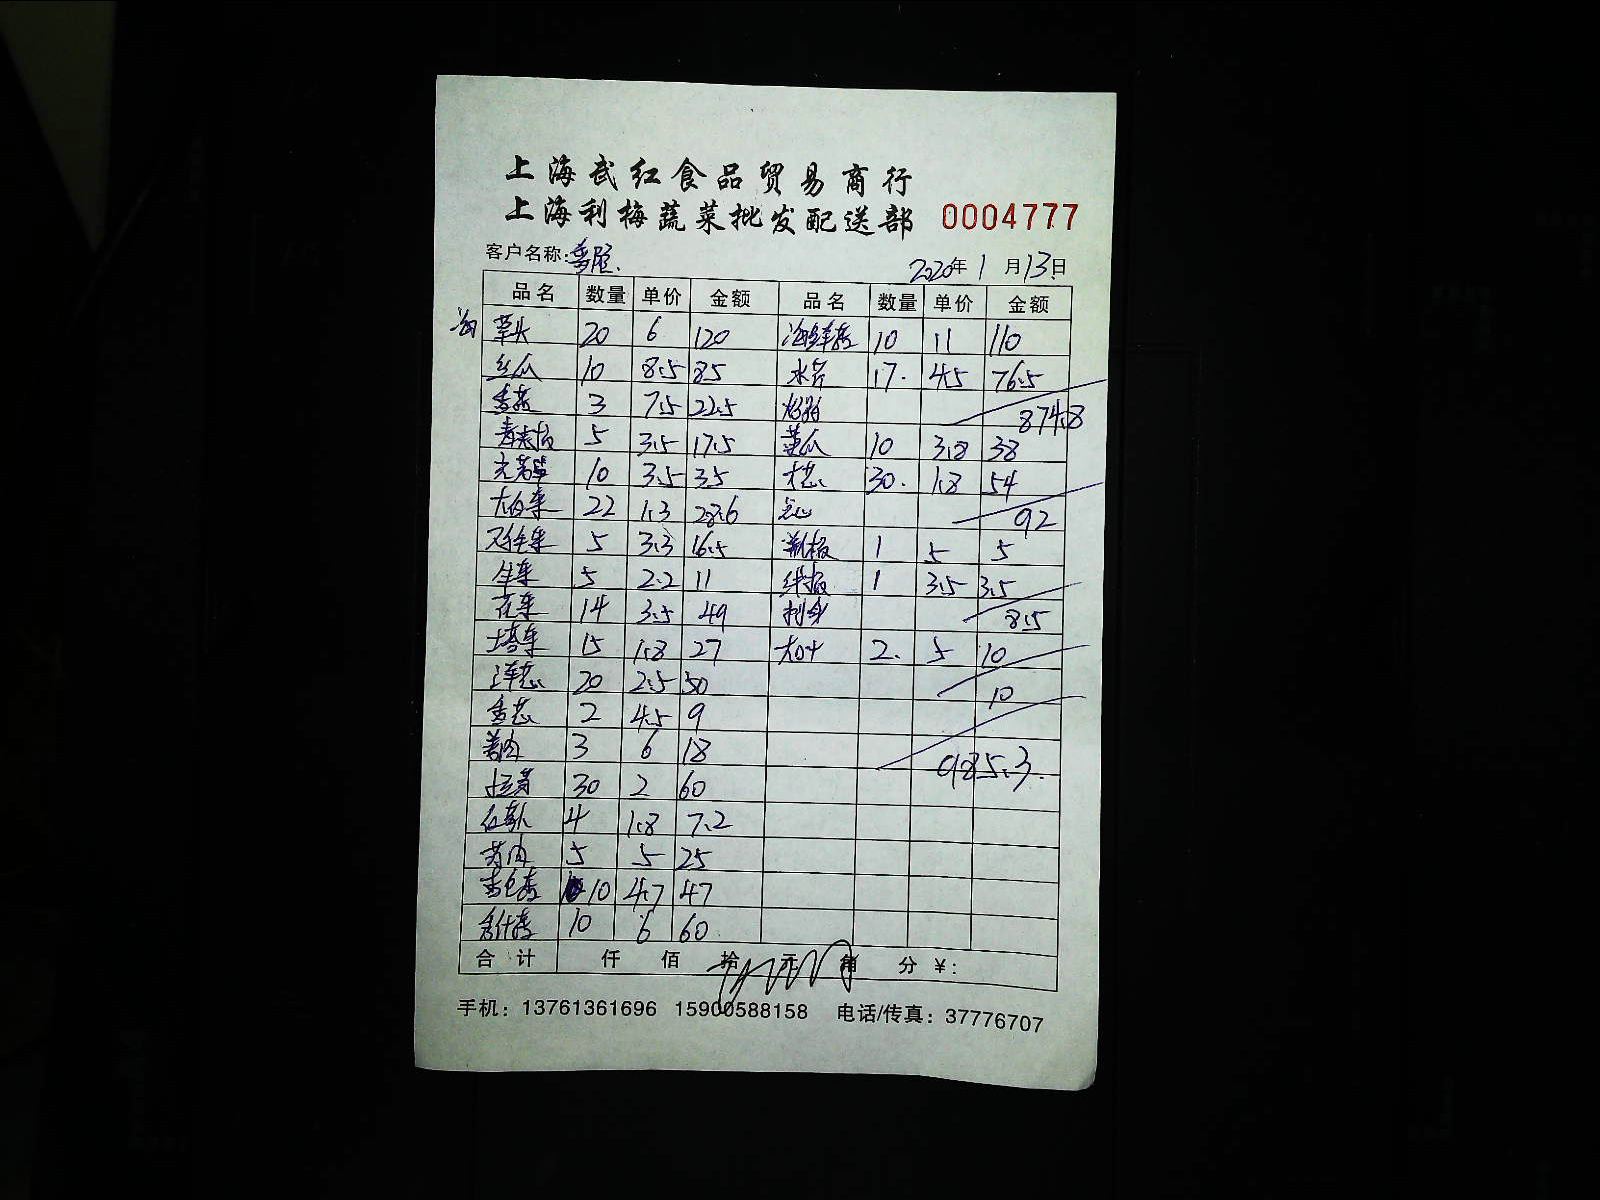 上海武红食品贸易商行
上海利梅蔬菜批发配送部 0004777
客户名称: 2020年1月13日
品名 数量 单价 金额 品名 数量 单价 金额
草头 20 6 120 海鲜菇 10 11 110
丝瓜 10 8.5 85 水芹 17. 4.5 76.5
香菇 3 7.5 22.5 874.8
青尖椒 5 3.5 17.5 黄瓜 10 3.8 38
10 3.5 35 30. 1.8 54
大白菜 22 1.3 28.6 点心 92
5 3.3 16.5 1 5 5
生菜 5 2.2 11 1 3.5 3.5
花菜 14 3.5 49 刺身 8.5
塔菜 15 1.8 27 大叶 2. 5 10
20 2.5 50 10
香芯 2 4.5 9
姜肉 3 6 18 985.3
30 2 60
4 1.8 7.2
5 5 25
10 4.7 47
10 6 60
合计 仟 佰 拾 元 角 分 ¥:
手机：13761361696 15900588158 电话/传真：37776707